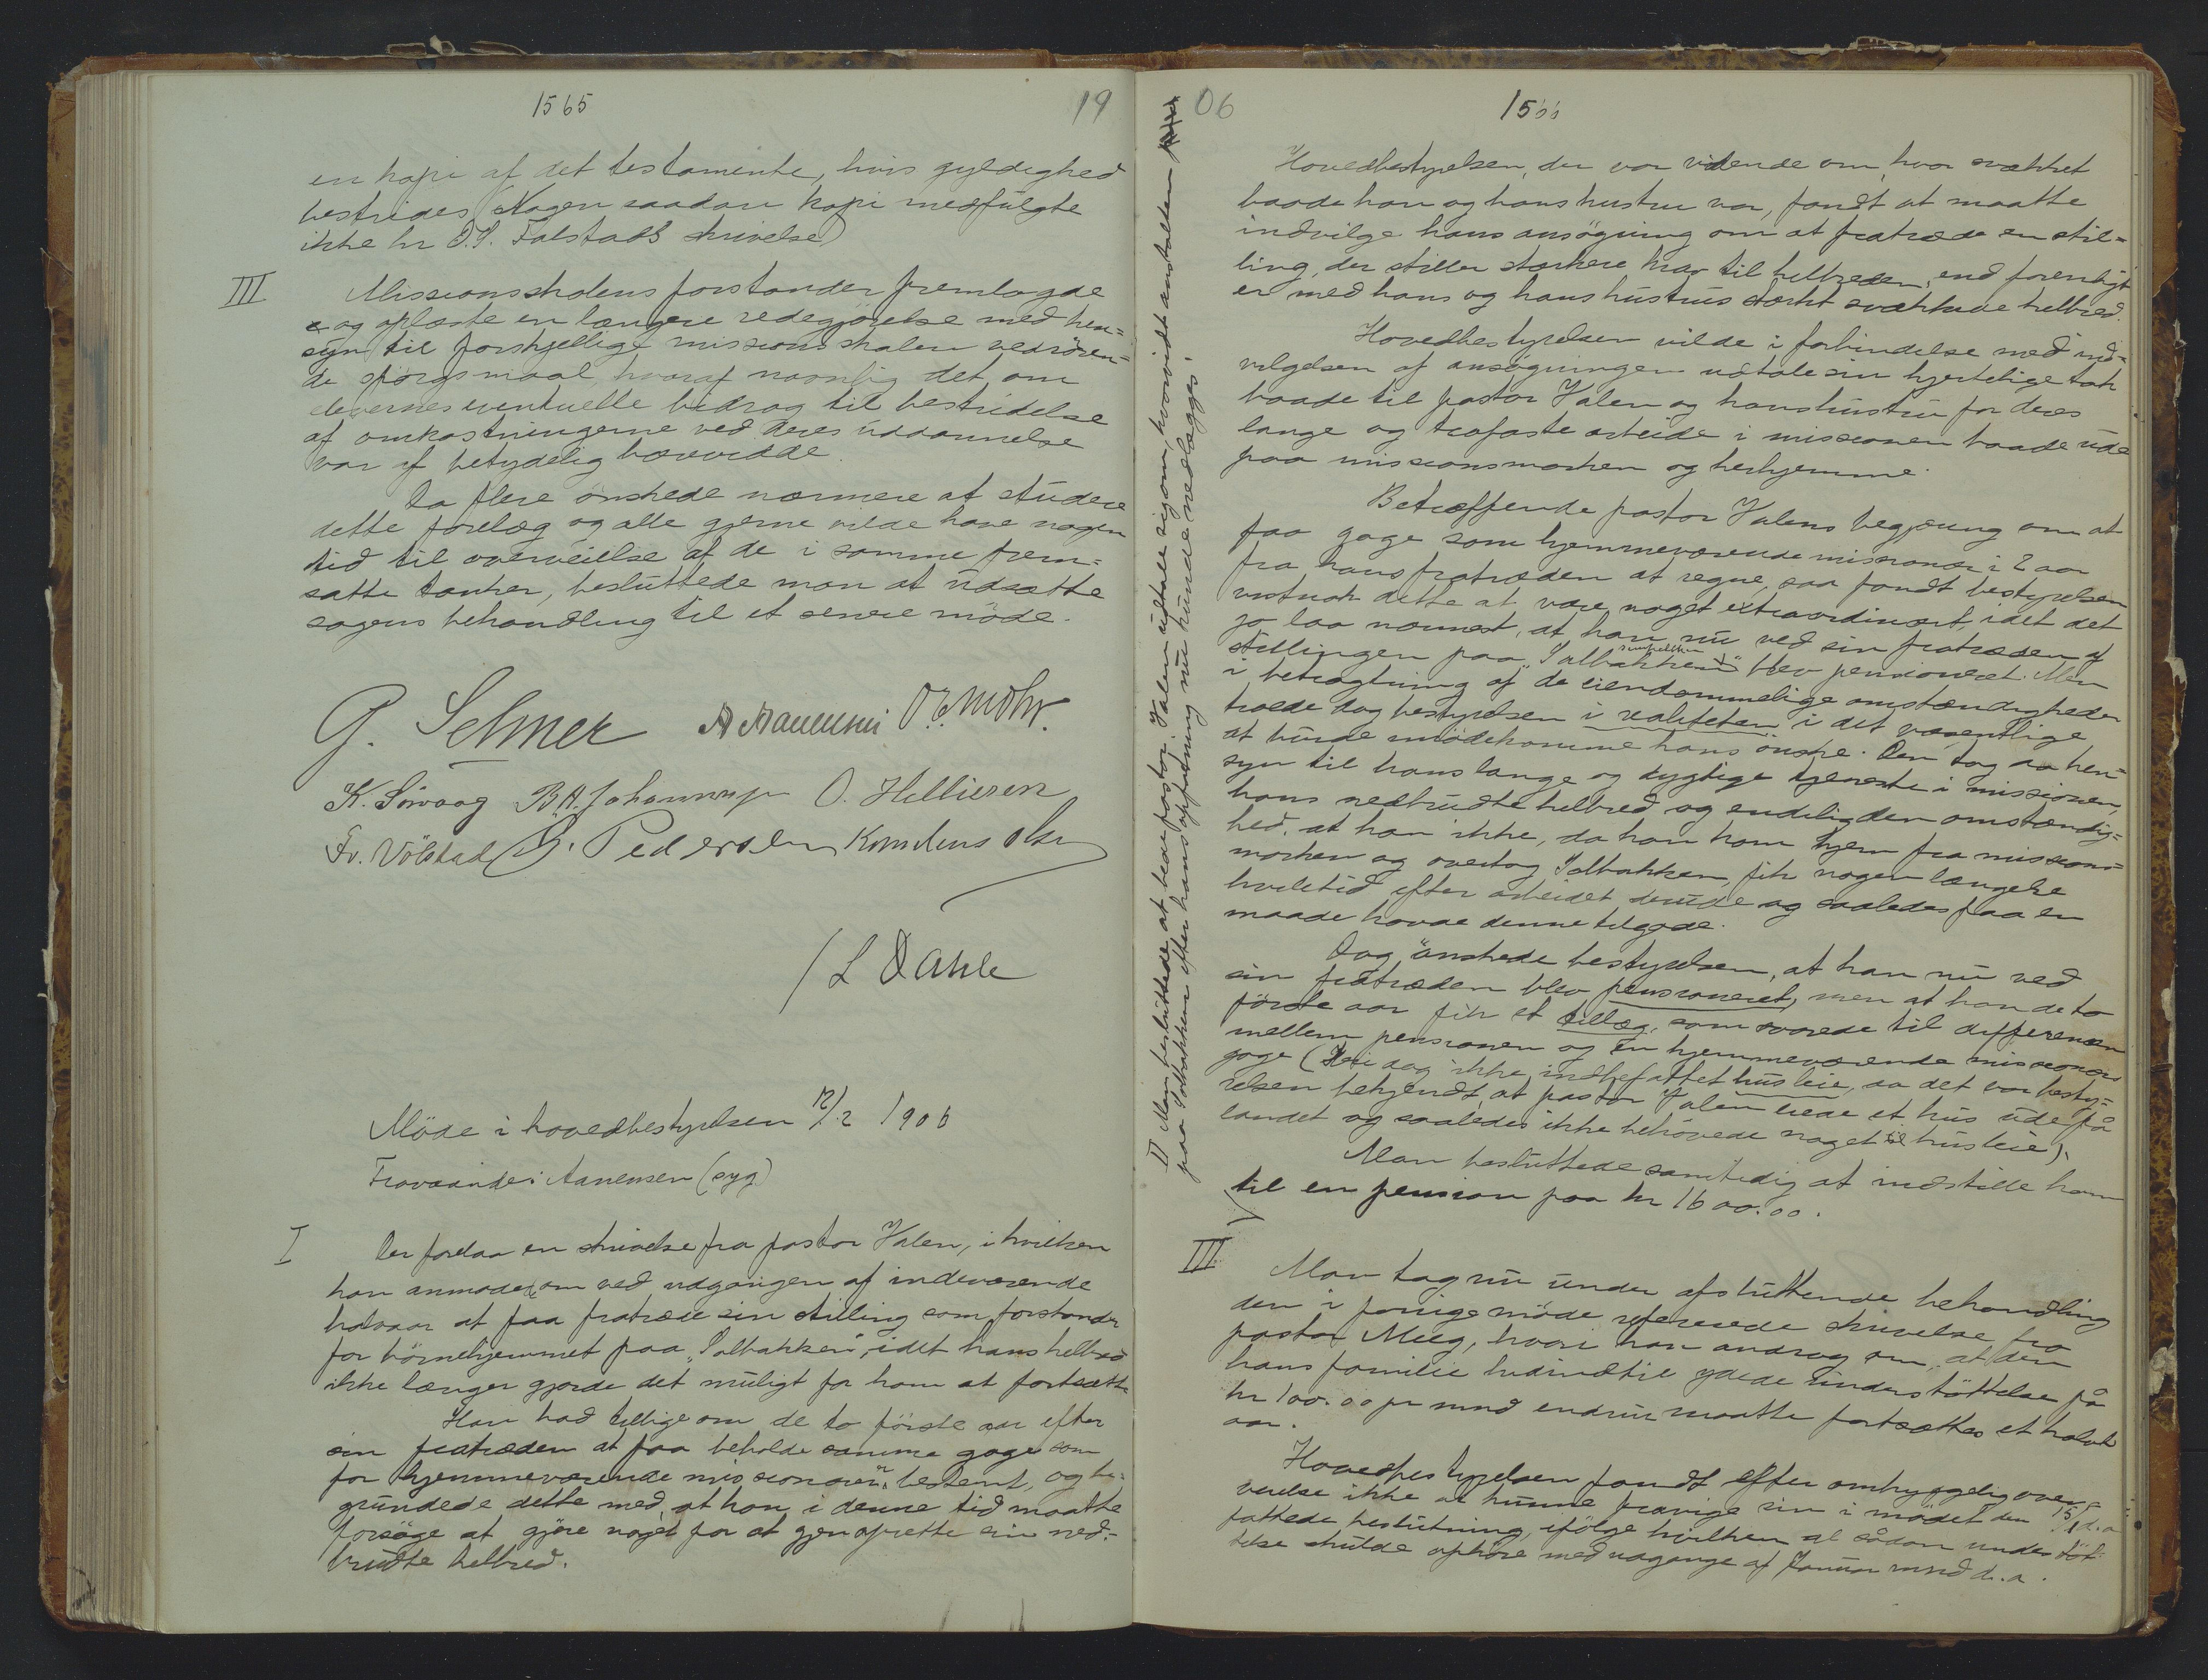 1565
19
en kopi af det testamente, hvis gyldighed
bestrides (Nogen saadan kopi medfulgte
ikke hr O.S. Falstads skrivelse)
III Missionsskolens forstander fremlagde
og oplæste en længere redegjørelse med hen-
syn til forskjellige missionsskolen vedrören-
de spörgsmaal, hvoraf navnlig det om
elevernes eventuelle bidrag til bestridelse
af omkostningerne ved deres uddannelse
var af betydelig rækkevidde.
Da flere önskede nærmere at studere
dette forelæg og alle gjerne vilde have nogen
tid til overveielse af de i samme frem-
satte tanker, besluttede man at udsætte
sagens behandling til et senere möde.
G. Selmer A Aanensen O. Z. Mohr.
K. Sövaag B.A. Johannesen O. Helliesen
Fr. Völstad G. Pedersen Kornelius Olsen
/ L Dahle
Möde i hovedbestyrelsen 12/2 1906
Fraværende: Aanensen (syg)
I Der forelaa en skrivelse fra pastor Valen, i hvilken
han anmodede om ved udgangen af indeværende
halvaar at faa fratræde sin stilling som forstander
for börnehjemmet paa "Solbakken", idet hans helbred
ikke længer gjorde det muligt for ham at fortsætte
Han bad tillige om de to förste aar efter
sin fratræden at faa beholde samme gage som
for hjemmeværende missionærer bestemt, og be-
grundede dette med, at han i denne tid maatte
forsöge at gjöre noget for at gjenoprette sin ned-
brudte helbred.
06
1566
Hovedbestyrelsen, der var vidende om, hvor svækket
baade han og hans hustru var, fandt at maatte
indvilge hans ansögning om at fratræde en stil-
ling, der stiller stærkere krav til helbreden, end forenligt
er med hans og hans hustrus stærkt svækkede helbred.
Hovedbestyrelsen vilde i forbindelse med ind-
vilgelsen af ansögningen udtale sin hjertelige tak
baade til pastor Valen og hans hustru for deres
lange og trofaste arbeide i missionen baade ude
paa missionsmarken og herhjemme.
Betræffende pastor Valens begjæring om at
faa gage som hjemmeværende missionær i 2 aar
fra hans fratræden at regne, saa fandt bestyrelsen
vistnok dette at være noget extraordinært, idet det
jo laa nærmest, at han nu ved sin fratræden af
stillingen paa "Solbakken" simpelthen blev pensioneret. Men
i betragtning af de eiendommelige omstændigheder
troede dog bestyrelsen i realiteten i det væsentlige
at burde imödekomme hans önske. Den tog da hen-
syn til hans lange og dygtige tjeneste i missionen,
hans nedbrudte helbred og endelig den omstændig-
hed, at han ikke, da han kom hjem fra missions-
marken og overtog Solbakken, fik nogen længere
hviletid efter arbeidet derude og saaledes paa en
maade havde denne tilgode.
Dog önskede bestyrelsen, at han nu ved
sin fratræden blev pensioneret, men at han de to
förste aar fik et tillæg, som svarede til differensen
mellem pensionen og en hjemmeværende missionærs
gage (Heri dog ikke indbefattet husleie, da det var besty-
relsen bekjendt, at pastor Valen eiede et hus ude på
landet og saaledes ikke behövede noget til husleie).
Man besluttede samtidig at indstille ham
til en pension paa kr 1600.00.
II Man besluttede at bede pastor Valen udtale sig om, hvorvidt anstalten
paa Solbakken efter hans opfatning nu kunde nedlægges.
III Man tog nu under afsluttende behandling
den i forrige möde refererede skrivelse fra
pastor Meeg, hvori han androg om, at den
hans familie hidindtil ydede understöttelse på
kr 100.00 pr mnd endnu maatte fortsættes et halvt
aar.
Hovedbestyrelsen fandt efter omhyggelig over-
veielse ikke at kunne fravige sin i mödet den 15/1 d.a
fattede beslutning, ifölge hvilken al sådan understöt-
telse skulde ophöre med udgange af Januar mnd d.a.